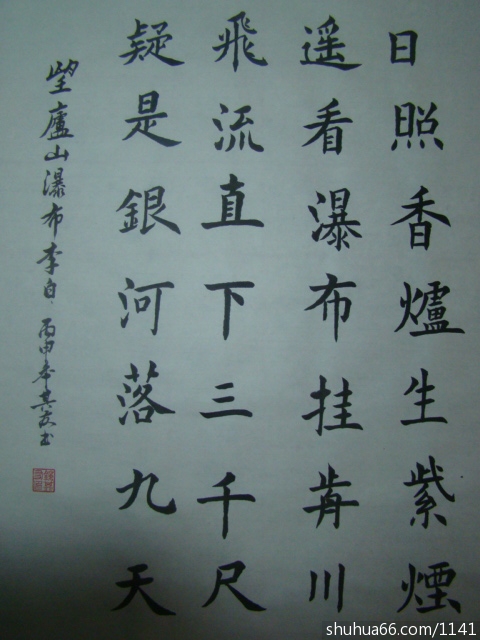 日照香爐生紫煙
遥看瀑布挂歬川
飛流直下三千尺
疑是銀河落九天
望廬山瀑布李白 丙申年其友书
shuhua66.com/1141